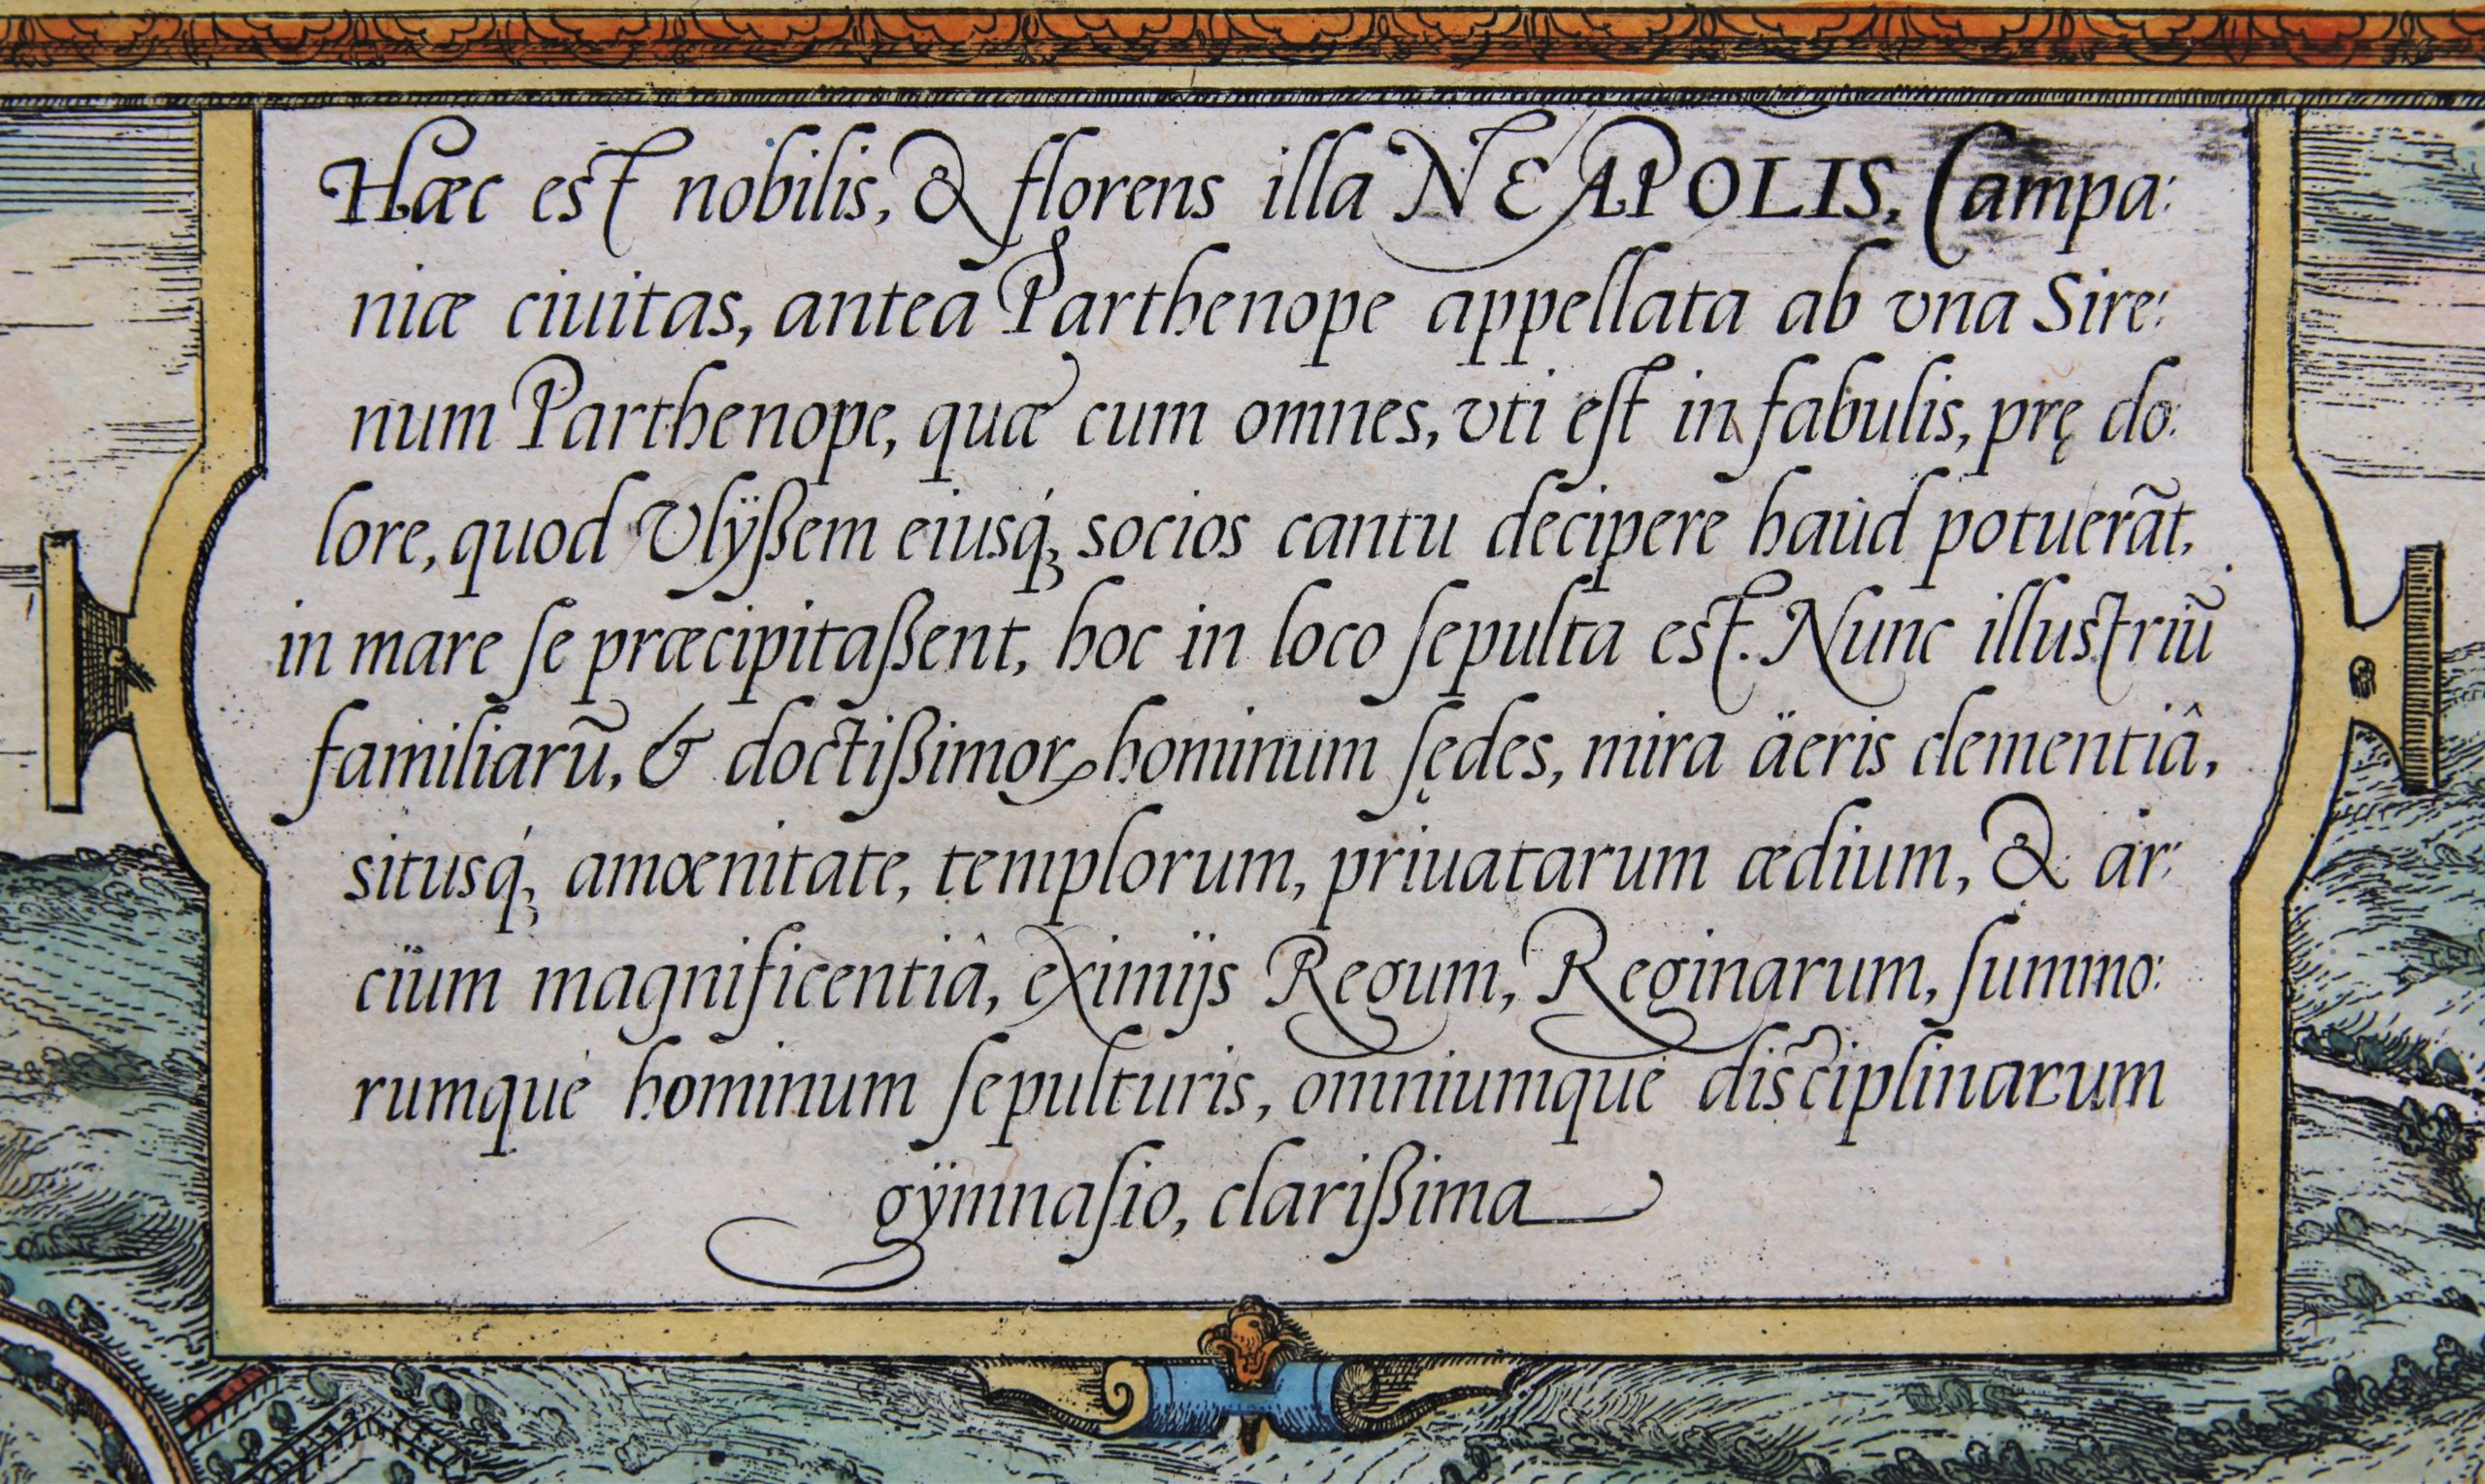 Hæc est nobilis, & florens illa NEAPOLIS, Campa:
niæ ciuitas, antea Parthenope appellata ab vna Sire:
num Parthenope, quæ cum omnes, vti eſt in fabulis, prę do:
lore, quod Vlÿßem eiusq́; socios cantu decipere haud potuerãt,
in mare ſe præcipitaßent, hoc in loco ſepulta est. Nunc illustriũ
familiarũ, & doctißimorꝝ hominum ſędes, mira äeris clementiâ,
situsq́; amœnitate, templorum, priuatarum ædium, & ar:
cium magnificentiâ, eximijs Regum, Reginarum, ſummo:
rumque hominum ſepulturis, omniumque disciplinarum
gÿmnaſio, clarißima